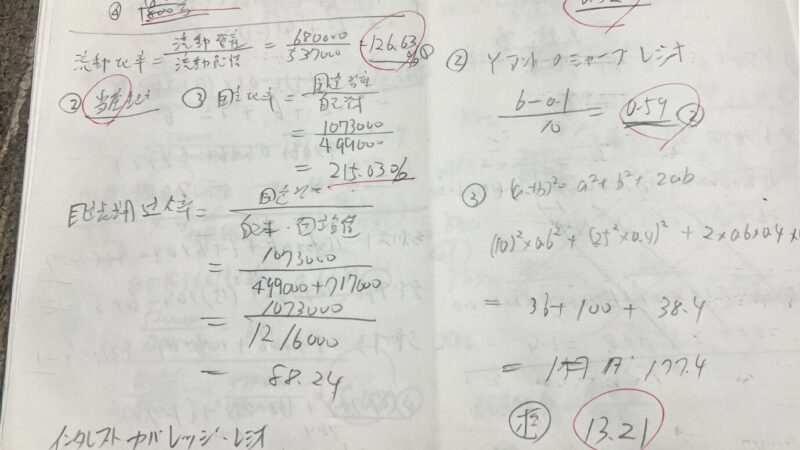 ④
流動比率 = 流動資産 / 流動負債 = 680000 / 537000 = 126.63% ①
② 当座比率 ③ 固定比率 = 固定資産 / 自己資本
= 1073000 / 499000
= 215.03%
固定長期適合率 = 固定資産 / 自己資本・固定負債
= 1073000 / 499000+717000
= 1073000 / 1216000
= 88.24
インタレスト カバレッジ・レシオ
② Yファンドのシャープレシオ
6-0.1 / 10 = 0.59 ②
③ (a+b)² = a² + b² + 2ab
(10)²×0.6² + (25²×0.4)² + 2×0.6×0.4×
= 36+100+38.4
= 177.4
13.21